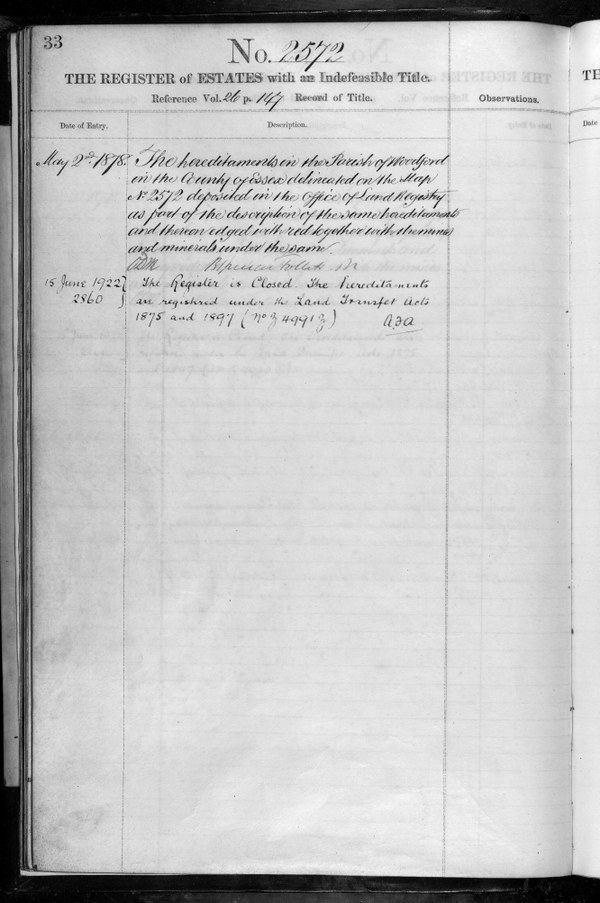 33
No. 2572
THE REGISTER of ESTATES with an Indefeasible Title.
Reference Vol. 26 p. 147 Record of Title.
Observations.
Date of Entry.
Description.
May 2nd. 1878.
The hereditaments in the Parish of Woodford
in the County of Essex delineated on the Map
No 2572 deposited in the Office of Land Registry
as part of the description of the same hereditaments
and thereon edged with red together with the mines
and minerals under the same.
15 June 1922
2860
The Register is Closed. The hereditaments
are registered under the Land Transfer Acts
1875 and 1897 (No Z 4991 Z)
TE
Date